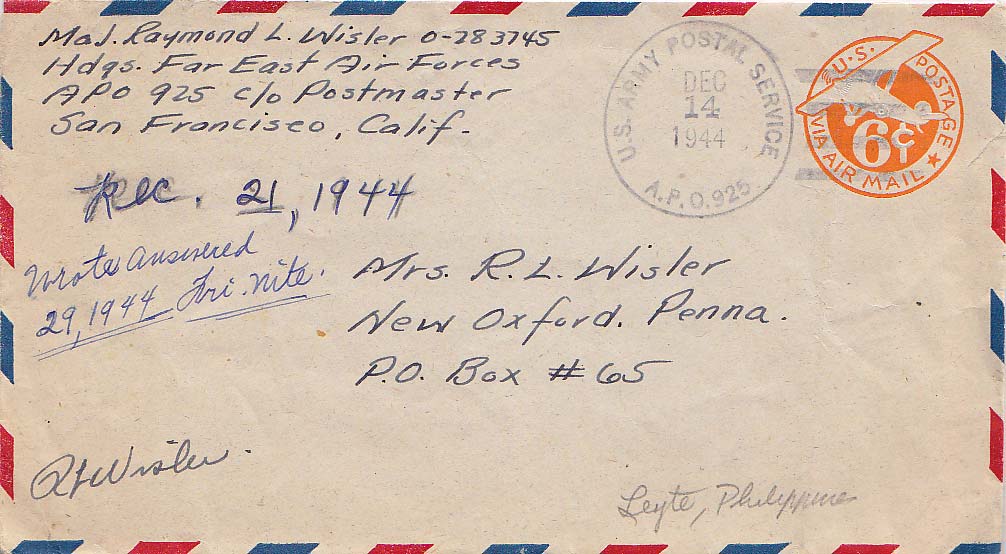 Maj. Raymond L. Wisler O-283745
Hdqs. Far East Air Forces
APO 925 c/o Postmaster
San Francisco, Calif.
U.S. ARMY POSTAL SERVICE
DEC
14
1944
A.P.O. 925
U.S. POSTAGE
6¢
VIA AIR MAIL
Rec. 21, 1944
Wrote Answered
29, 1944 Fri. nite.
Mrs. R. L. Wisler
New Oxford. Penna.
P.O. Box # 65
RLWisler.
Leyte, Philippines